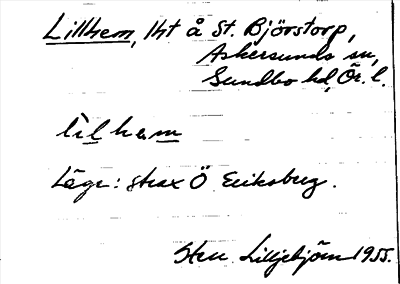 Lillhem, lht å St. Björstorp,
Askersunds sn,
Sundbo hd, Ör. l.
lìlhæm
Läge: strax Ö Eriksberg.
Sten Lilljebjörn 1955.